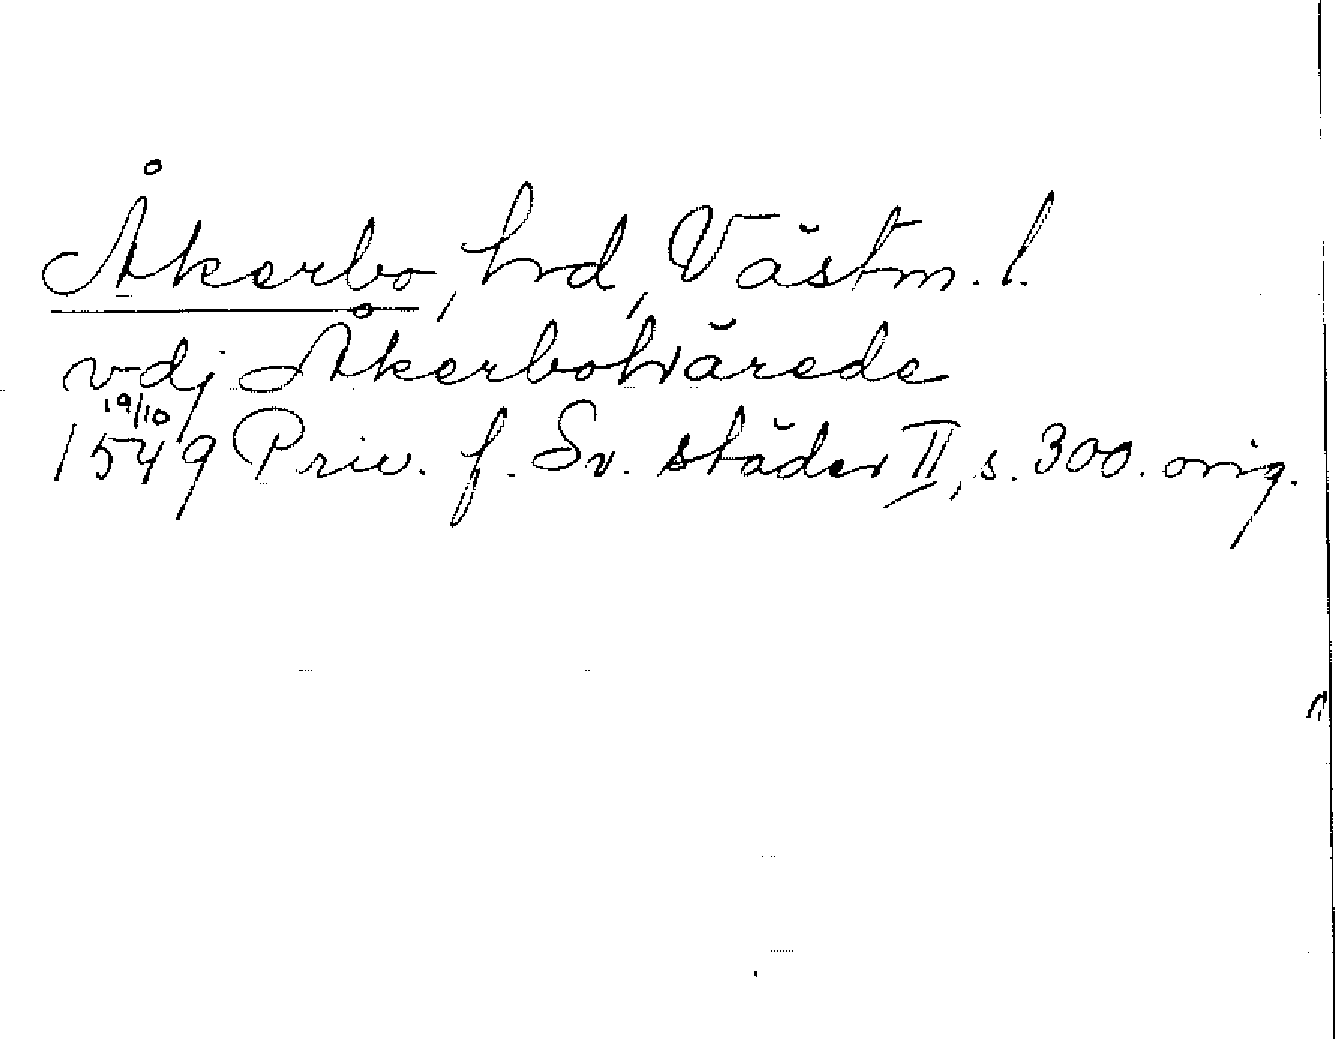 Åkerbo, hd, Västm. l.
vdj Åkerbohärede
19/10
1549 Priv. f. Sv. städer II, s. 300. orig.